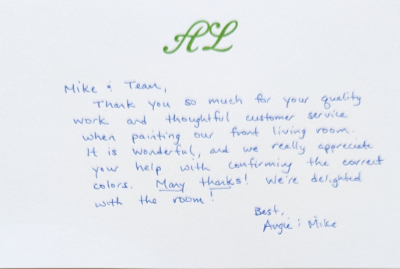 AL
Mike & Team,
Thank you so much for your quality
work and thoughtful customer service
when painting our front living room.
It is wonderful, and we really appreciate
your help with confirming the correct
colors. Many thanks! We're delighted
with the room!
Best,
Angie & Mike